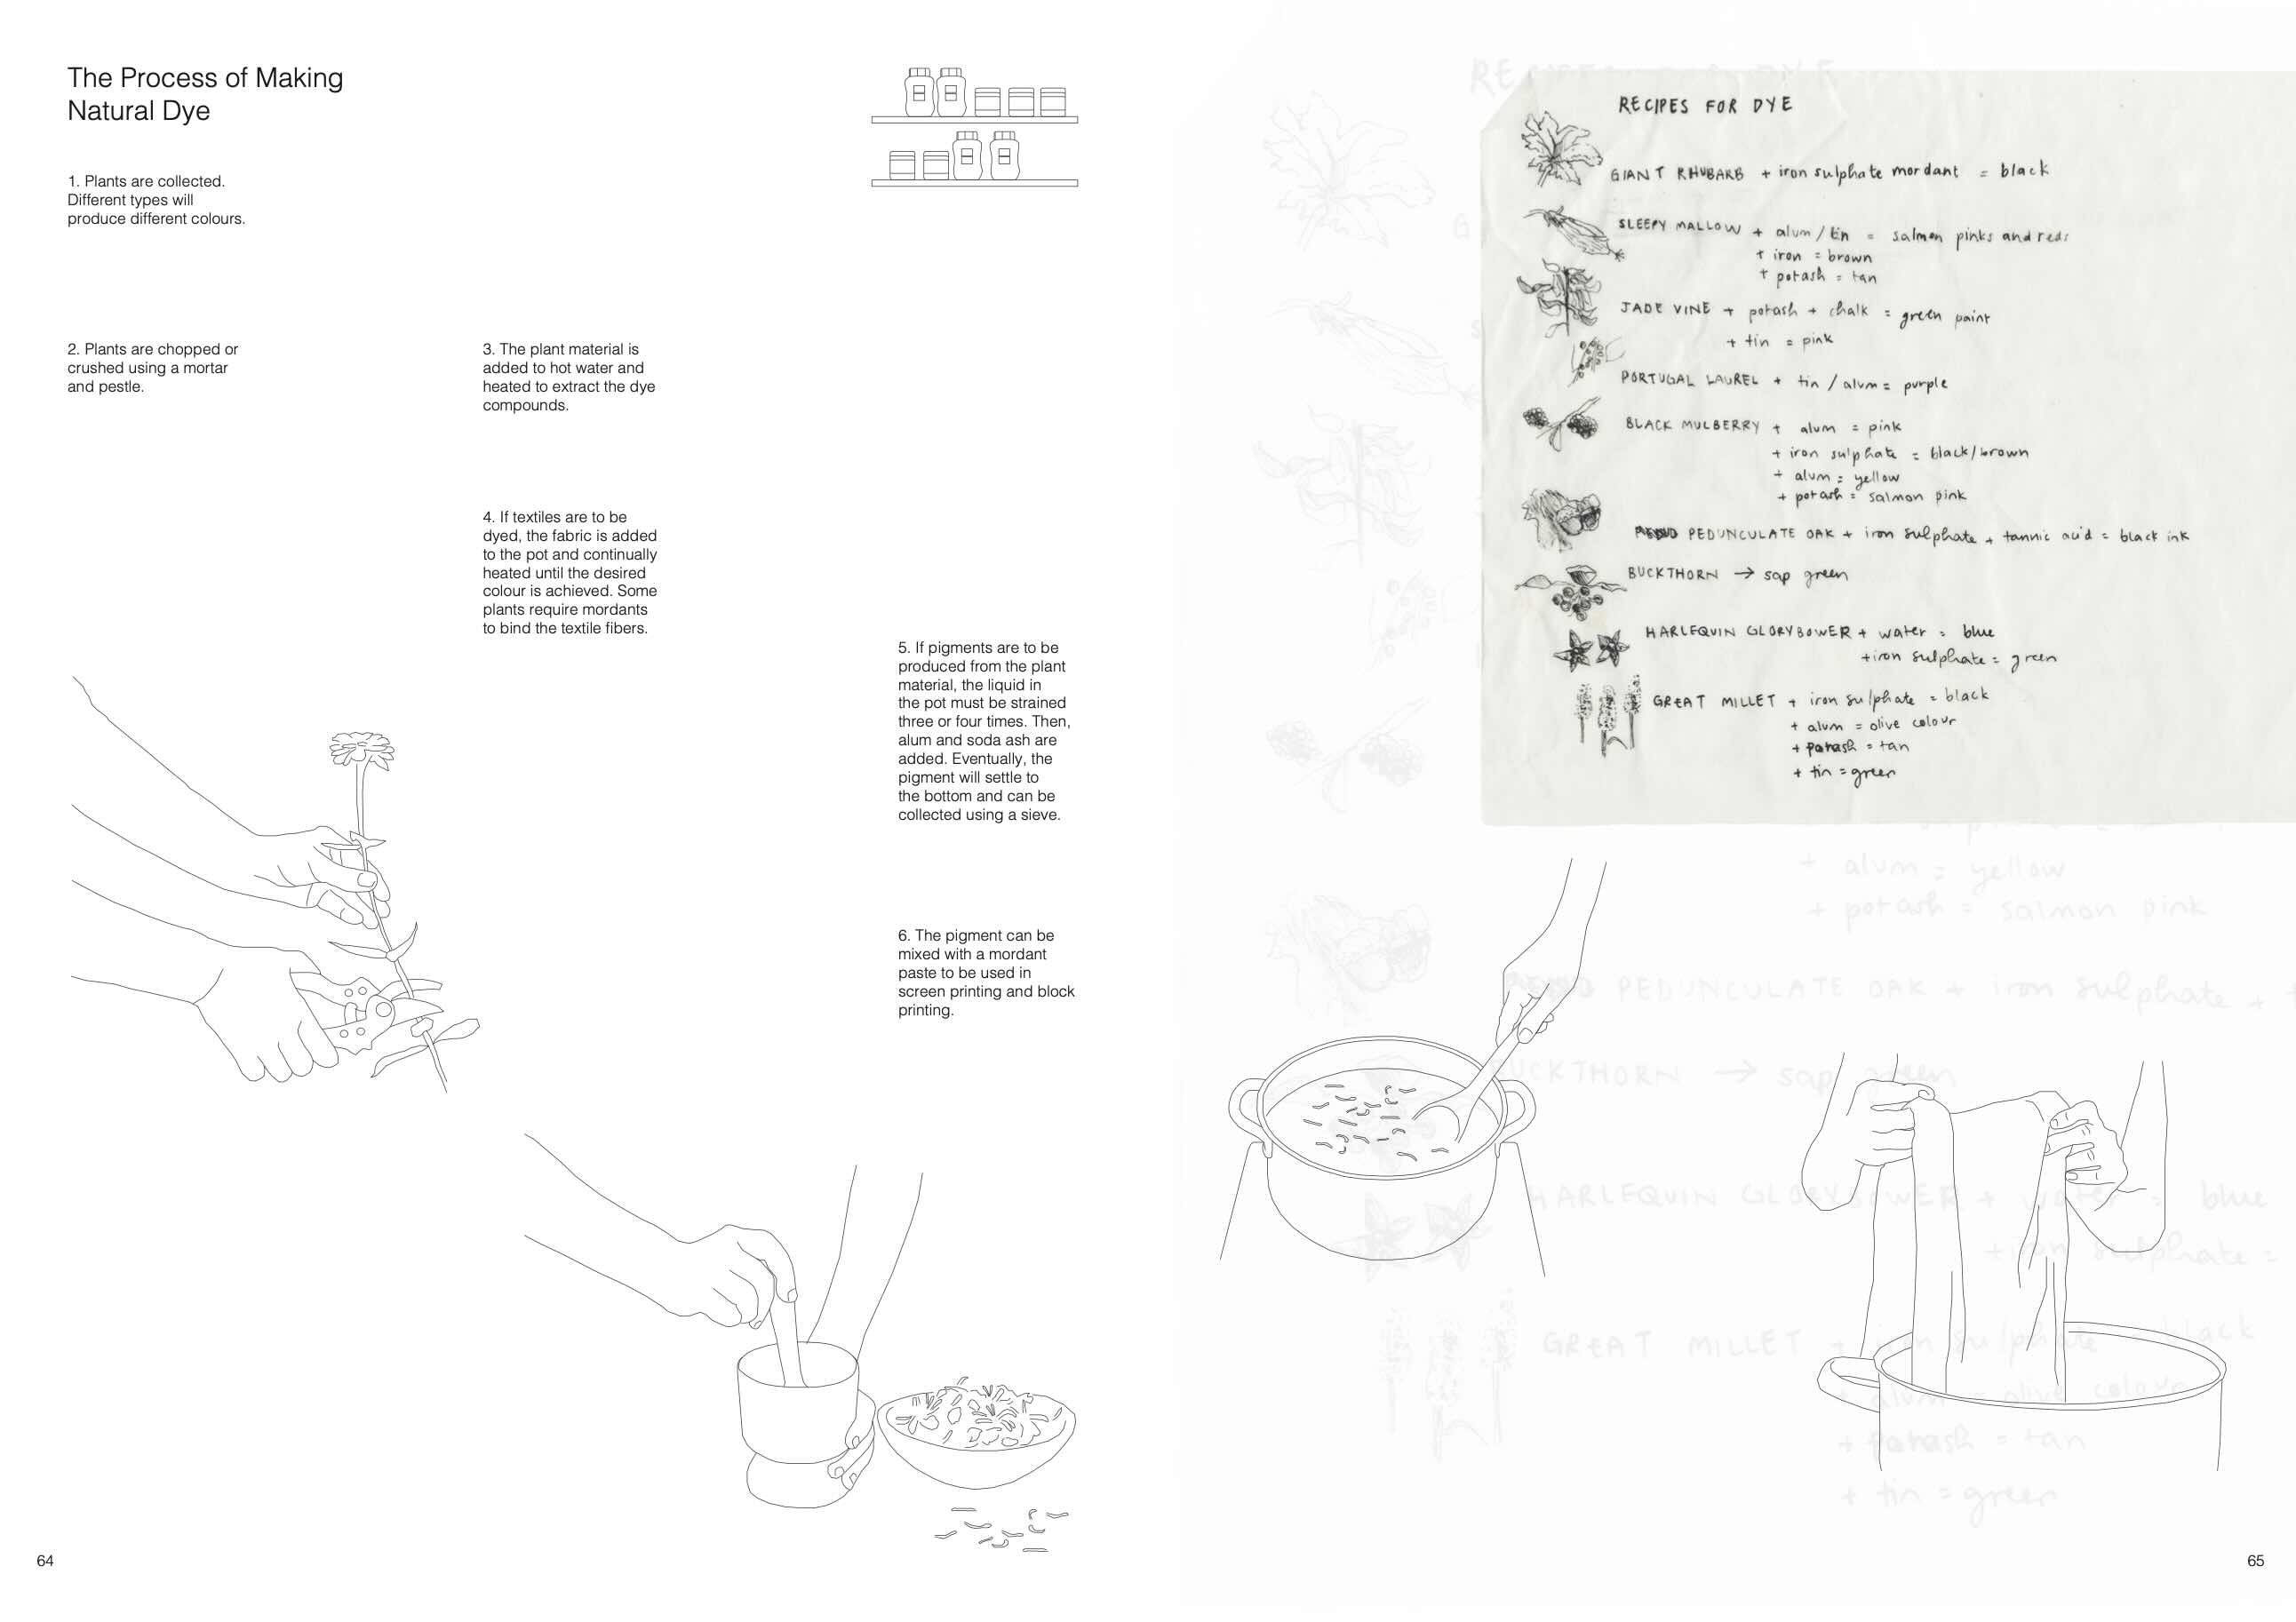 The Process of Making
Natural Dye
1. Plants are collected.
Different types will
produce different colours.
2. Plants are chopped or
crushed using a mortar
and pestle.
3. The plant material is
added to hot water and
heated to extract the dye
compounds.
4. If textiles are to be
dyed, the fabric is added
to the pot and continually
heated until the desired
colour is achieved. Some
plants require mordants
to bind the textile fibers.
5. If pigments are to be
produced from the plant
material, the liquid in
the pot must be strained
three or four times. Then,
alum and soda ash are
added. Eventually, the
pigment will settle to
the bottom and can be
collected using a sieve.
6. The pigment can be
mixed with a mordant
paste to be used in
screen printing and block
printing.
64
RECIPES FOR DYE
GIANT RHUBARB + iron sulphate mordant = black
SLEEPY MALLOW + alum / tin = salmon pinks and reds
+ iron = brown
+ potash = tan
JADE VINE + potash + chalk = green paint
+ tin = pink
PORTUGAL LAUREL + tin / alum = purple
BLACK MULBERRY + alum = pink
+ iron sulphate = black/brown
+ alum = yellow
+ potash = salmon pink
PEDUNCULATE OAK + iron sulphate + tannic acid = black ink
BUCKTHORN → sap green
HARLEQUIN GLORYBOWER + water = blue
+ iron sulphate = green
GREAT MILLET + iron sulphate = black
+ alum = olive colour
+ potash = tan
+ tin = green
+ alum = yellow
+ potash = salmon pink
PEDUNCULATE OAK + iron sulphate +
BUCKTHORN → sap green
HARLEQUIN GLORYBOWER + water = blue
+ iron sulphate =
GREAT MILLET + iron sulphate = black
+ alum = olive colour
+ potash = tan
+ tin = green
65